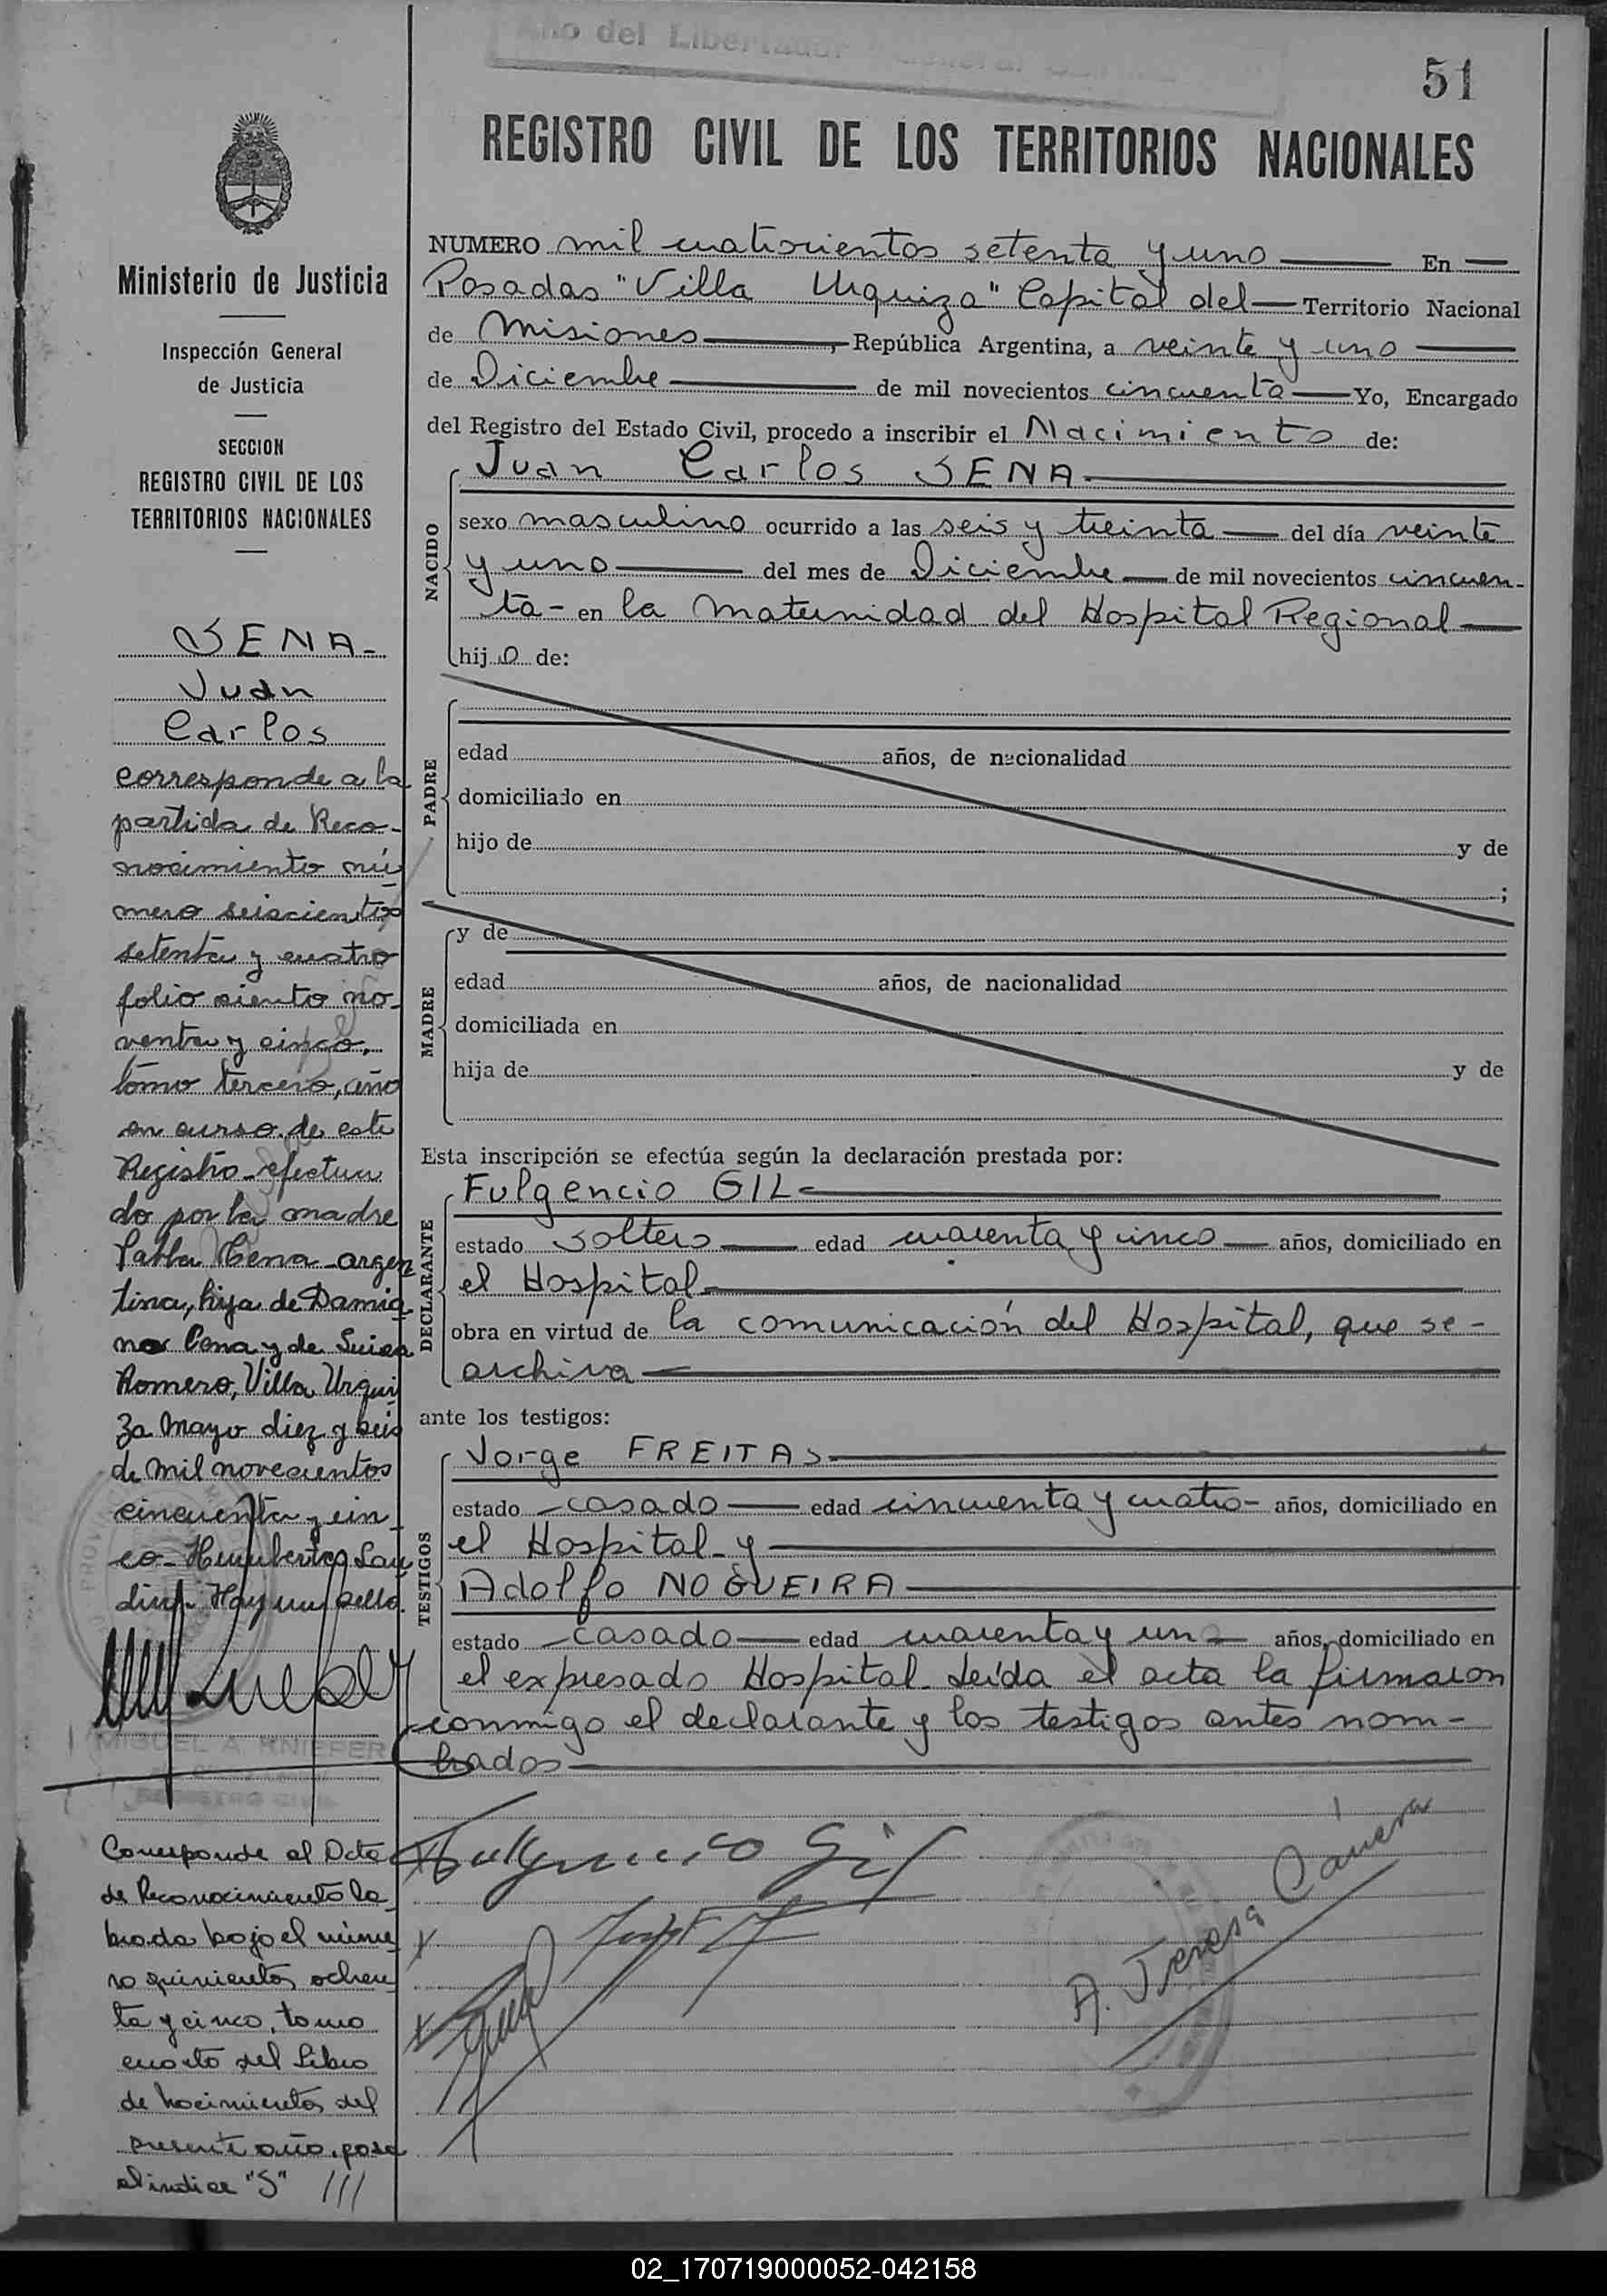 Año del Libertador General San
51
REGISTRO CIVIL DE LOS TERRITORIOS NACIONALES
Ministerio de Justicia
Inspección General
de Justicia
SECCION
REGISTRO CIVIL DE LOS
TERRITORIOS NACIONALES
SENA-
Juan
Carlos
corresponde a la
partida de Reco-
nocimiento nú
mero seiscientos
setenta y cuatro
folio ciento no-
venta y cinco,
tomo tercero, año
en curso de este
Registro-efectua
do por la madre
Pabla Cena-argen
tina, hija de Damia
no Cena y de Luisa
Romero, Villa Urqui
za Mayo diez y seis
de mil novecientos
cincuenta y cin-
co- Humberto
Hay un sello.
MIGUEL A. KNIEPER
REGISTRO CIVIL
Corresponde al Acta
de Reconocimiento la
brada bajo el núme
ro quinientos ochen
ta y cinco, tomo
cuarto del Libro
de Nacimientos del
presente año, pasa
al indice "S" ///
NUMERO mil cuatrocientos setenta y uno En
Posadas "Villa Urquiza" Capital del Territorio Nacional
de Misiones, República Argentina, a veinte y uno
de Diciembre de mil novecientos cincuenta Yo, Encargado
del Registro del Estado Civil, procedo a inscribir el Nacimiento de:
NACIDO
Juan Carlos SENA
sexo masculino ocurrido a las seis y treinta del día veinte
y uno del mes de Diciembre de mil novecientos cincuen-
ta- en la Maternidad del Hospital Regional
hijo de:
PADRE
edad años, de nacionalidad
domiciliado en
hijo de y de
;
MADRE
y de
edad años, de nacionalidad
domiciliada en
hija de y de
Esta inscripción se efectúa según la declaración prestada por:
DECLARANTE
Fulgencio GIL
estado soltero edad cuarenta y cinco años, domiciliado en
el Hospital
obra en virtud de la comunicación del Hospital, que se-
archiva
ante los testigos:
TESTIGOS
Jorge FREITAS
estado casado edad cincuenta y cuatro- años, domiciliado en
el Hospital-y
Adolfo NOGUEIRA
estado casado edad cuarenta y un años, domiciliado en
el expresado Hospital- Leída el acta la firmaron
conmigo el declarante y los testigos antes nom-
brados
Fulgencio Gil
A. Teresa
02_170719000052-042158